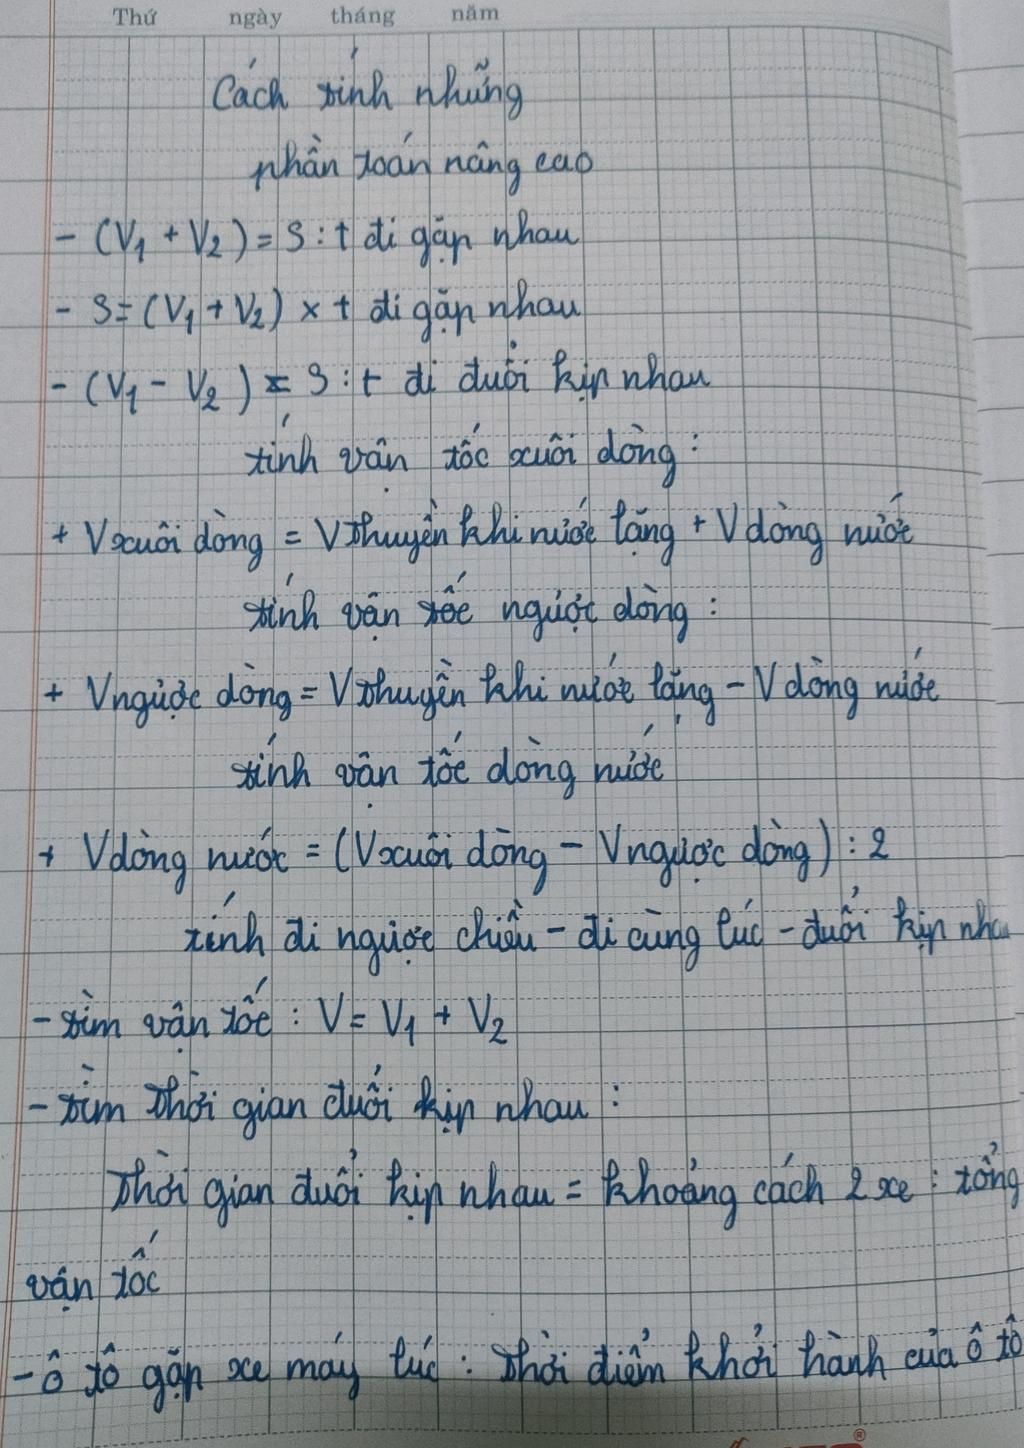 Thứ ngày tháng năm
Cách tính những
phần toán nâng cao
- (V₁ + V₂) = S : t đi gặp nhau
- S = (V₁ + V₂) x t đi gặp nhau
- (V₁ - V₂) = S : t đi đuổi kịp nhau
tính vận tốc xuôi dòng :
+ V xuôi dòng = V thuyền khi nước lặng + V dòng nước
tính vận tốc ngược dòng :
+ V ngược dòng = V thuyền khi nước lặng - V dòng nước
tính vận tốc dòng nước
+ V dòng nước = (V xuôi dòng - V ngược dòng) : 2
tính đi ngược chiều - đi cùng lúc - đuổi kịp nha
- tìm vận tốc : V = V₁ + V₂
- tìm thời gian đuổi kịp nhau :
Thời gian đuổi kịp nhau = khoảng cách 2 xe : tổng
vận tốc
- ô tô gặp xe máy lúc : thời điểm khởi hành của ô tô